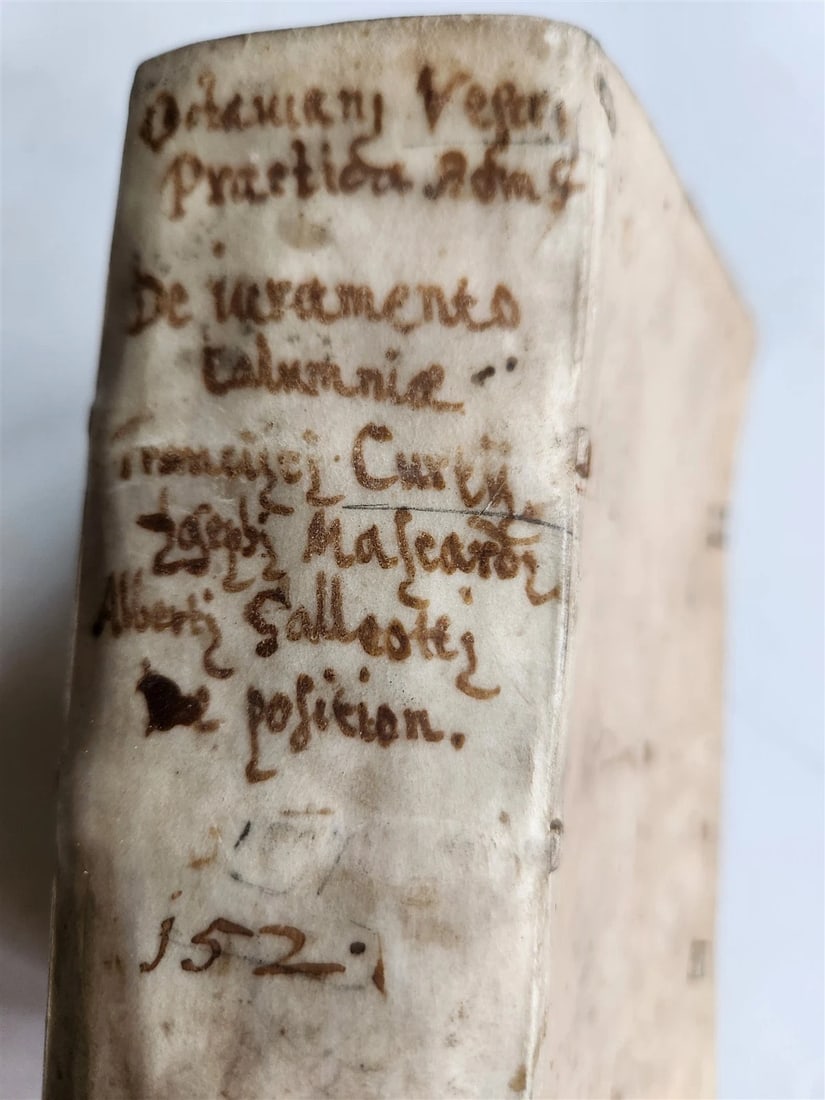 Octauianj Vestrij
Practica Adm
De iuramento
calumniæ
Francisci Curtij
Josephj Mascardj
Albertj Galleottj
De position.
j52.